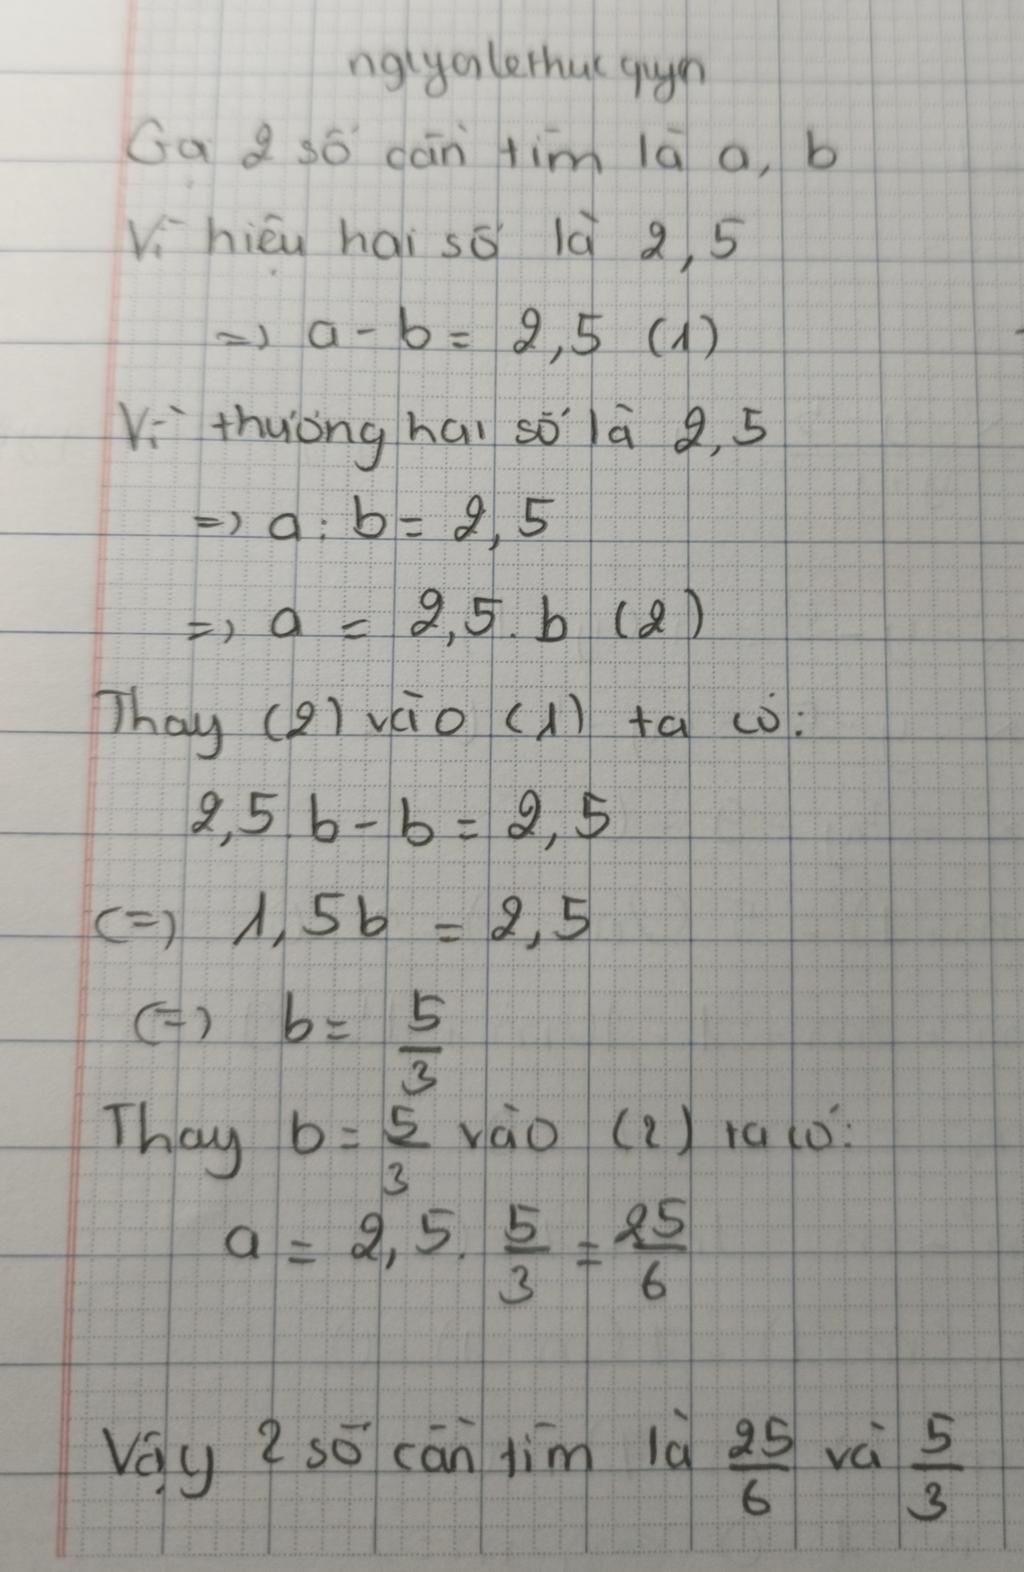 ngyalethucquyn
Gọi 2 số cần tìm là a, b
Vì hiệu hai số là 2,5
=> a - b = 2,5 (1)
Vì thương hai số là 2,5
=> a : b = 2,5
=> a = 2,5 . b (2)
Thay (2) vào (1) ta có:
2,5 . b - b = 2,5
(=) 1,5b = 2,5
(=) b = 5/3
Thay b = 5/3 vào (2) ta có:
a = 2,5 . 5/3 = 25/6
Vậy 2 số cần tìm là 25/6 và 5/3